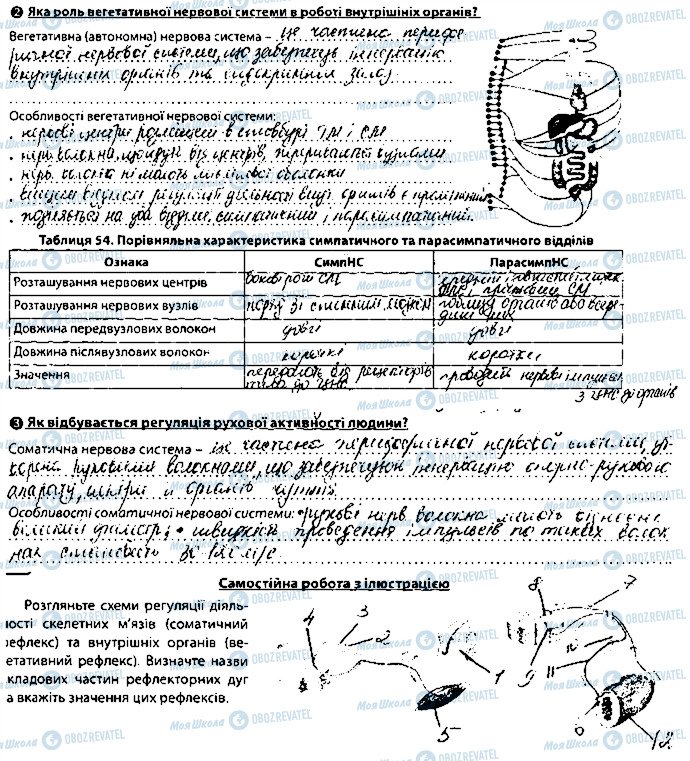 ❷ Яка роль вегетативної нервової системи в роботі внутрішніх органів?
Вегетативна (автономна) нервова система – це частина перифе
ричної нервової системи, що забезпечує іннервацію
внутрішніх органів та ендокринних залоз
Особливості вегетативної нервової системи:
• нервові центри розміщені в стовбурі ГМ і СМ
• нерв. волокна, що йдуть від центрів, перериваються вузлами
• нерв. волокна не мають мієлінової оболонки
• вищим відділом регуляції діяльності внутр. органів є проміжний
• поділяється на два відділи, симпатичний і парасимпатичний.
Таблиця 54. Порівняльна характеристика симпатичного та парасимпатичного відділів
Ознака СимпНС ПарасимпНС
Розташування нервових центрів бокові роги СМ середній і довгастий мозок
СМ
Розташування нервових вузлів поряд зі спинним мозком поблизу органів або всере-
дині них
Довжина передвузлових волокон довгі довгі
Довжина післявузлових волокон короткі короткі
Значення передають від рецепторів
тіла до ЦНС проводить нервові імпульси
з ЦНС до органів
❸ Як відбувається регуляція рухової активності людини?
Соматична нервова система – це частина периферичної нервової системи, ут-
ворена руховими волокнами, що забезпечують іннервацію опорно-рухового
апарату, шкіри й органів чуттів
Особливості соматичної нервової системи: • рухові нерв. волокна мають відносно
великий діаметр; • швидкість проведення імпульсів по таких волок
нах
Самостійна робота з ілюстрацією
Розгляньте схеми регуляції діяль-
ності скелетних м’язів (соматичний
рефлекс) та внутрішніх органів (ве-
етативний рефлекс). Визначте назви
кладових частин рефлекторних дуг
а вкажіть значення цих рефлексів.
4 3 2 1 5
8 7 10 9 11 6 12
МояШкола OBOZREVATEL